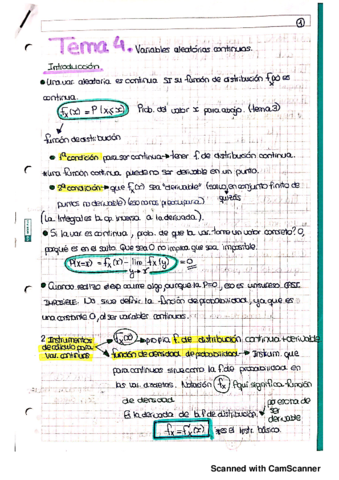 1
Tema 4. Variables aleatorias continuas.
Introducción
• Una var. aleatoria es continua SI su función de distribución es
continua.
Fx(x) = P(X≤x) Prob. del valor x para abajo. (tema 3)
función de distribución
• 1ª condición para ser continua → tener f. de distribución continua.
• Una función continua puede no ser derivable en un punto.
• 2ª condición → que fx(x) sea "derivable" (salvo en conjunto finito de
puntos no derivable)
(La integral es la op. inversa a la derivada).
• Si la var. es continua, prob. de que la var. tome un valor concreto? 0,
porque es en el salto. Que sea 0 no implica que sea imposible.
P(X=x) = Fx(x) - lim Fx(y) = 0
y→x
• Cuando realmente ocurre algo aunque la P=0, eso es un suceso CASI
IMPOSIBLE. No sirve definir la función de probabilidad, ya que es
una constante 0, al ser variables continuas.
2. Instrumentos
de cálculo para
var. continuas
Fx(x) → propia f. de distribución continua + derivable
función de densidad de probabilidad → Instrum. que
para continuas sirve como la f. de probabilidad en
las var. discretas. Notación fx Aquí significa función
de densidad.
Es la derivada de la f. de distribución, por eso ha de
ser
derivable
fx = F'x(x) → es el instr. básico.
Scanned with CamScanner